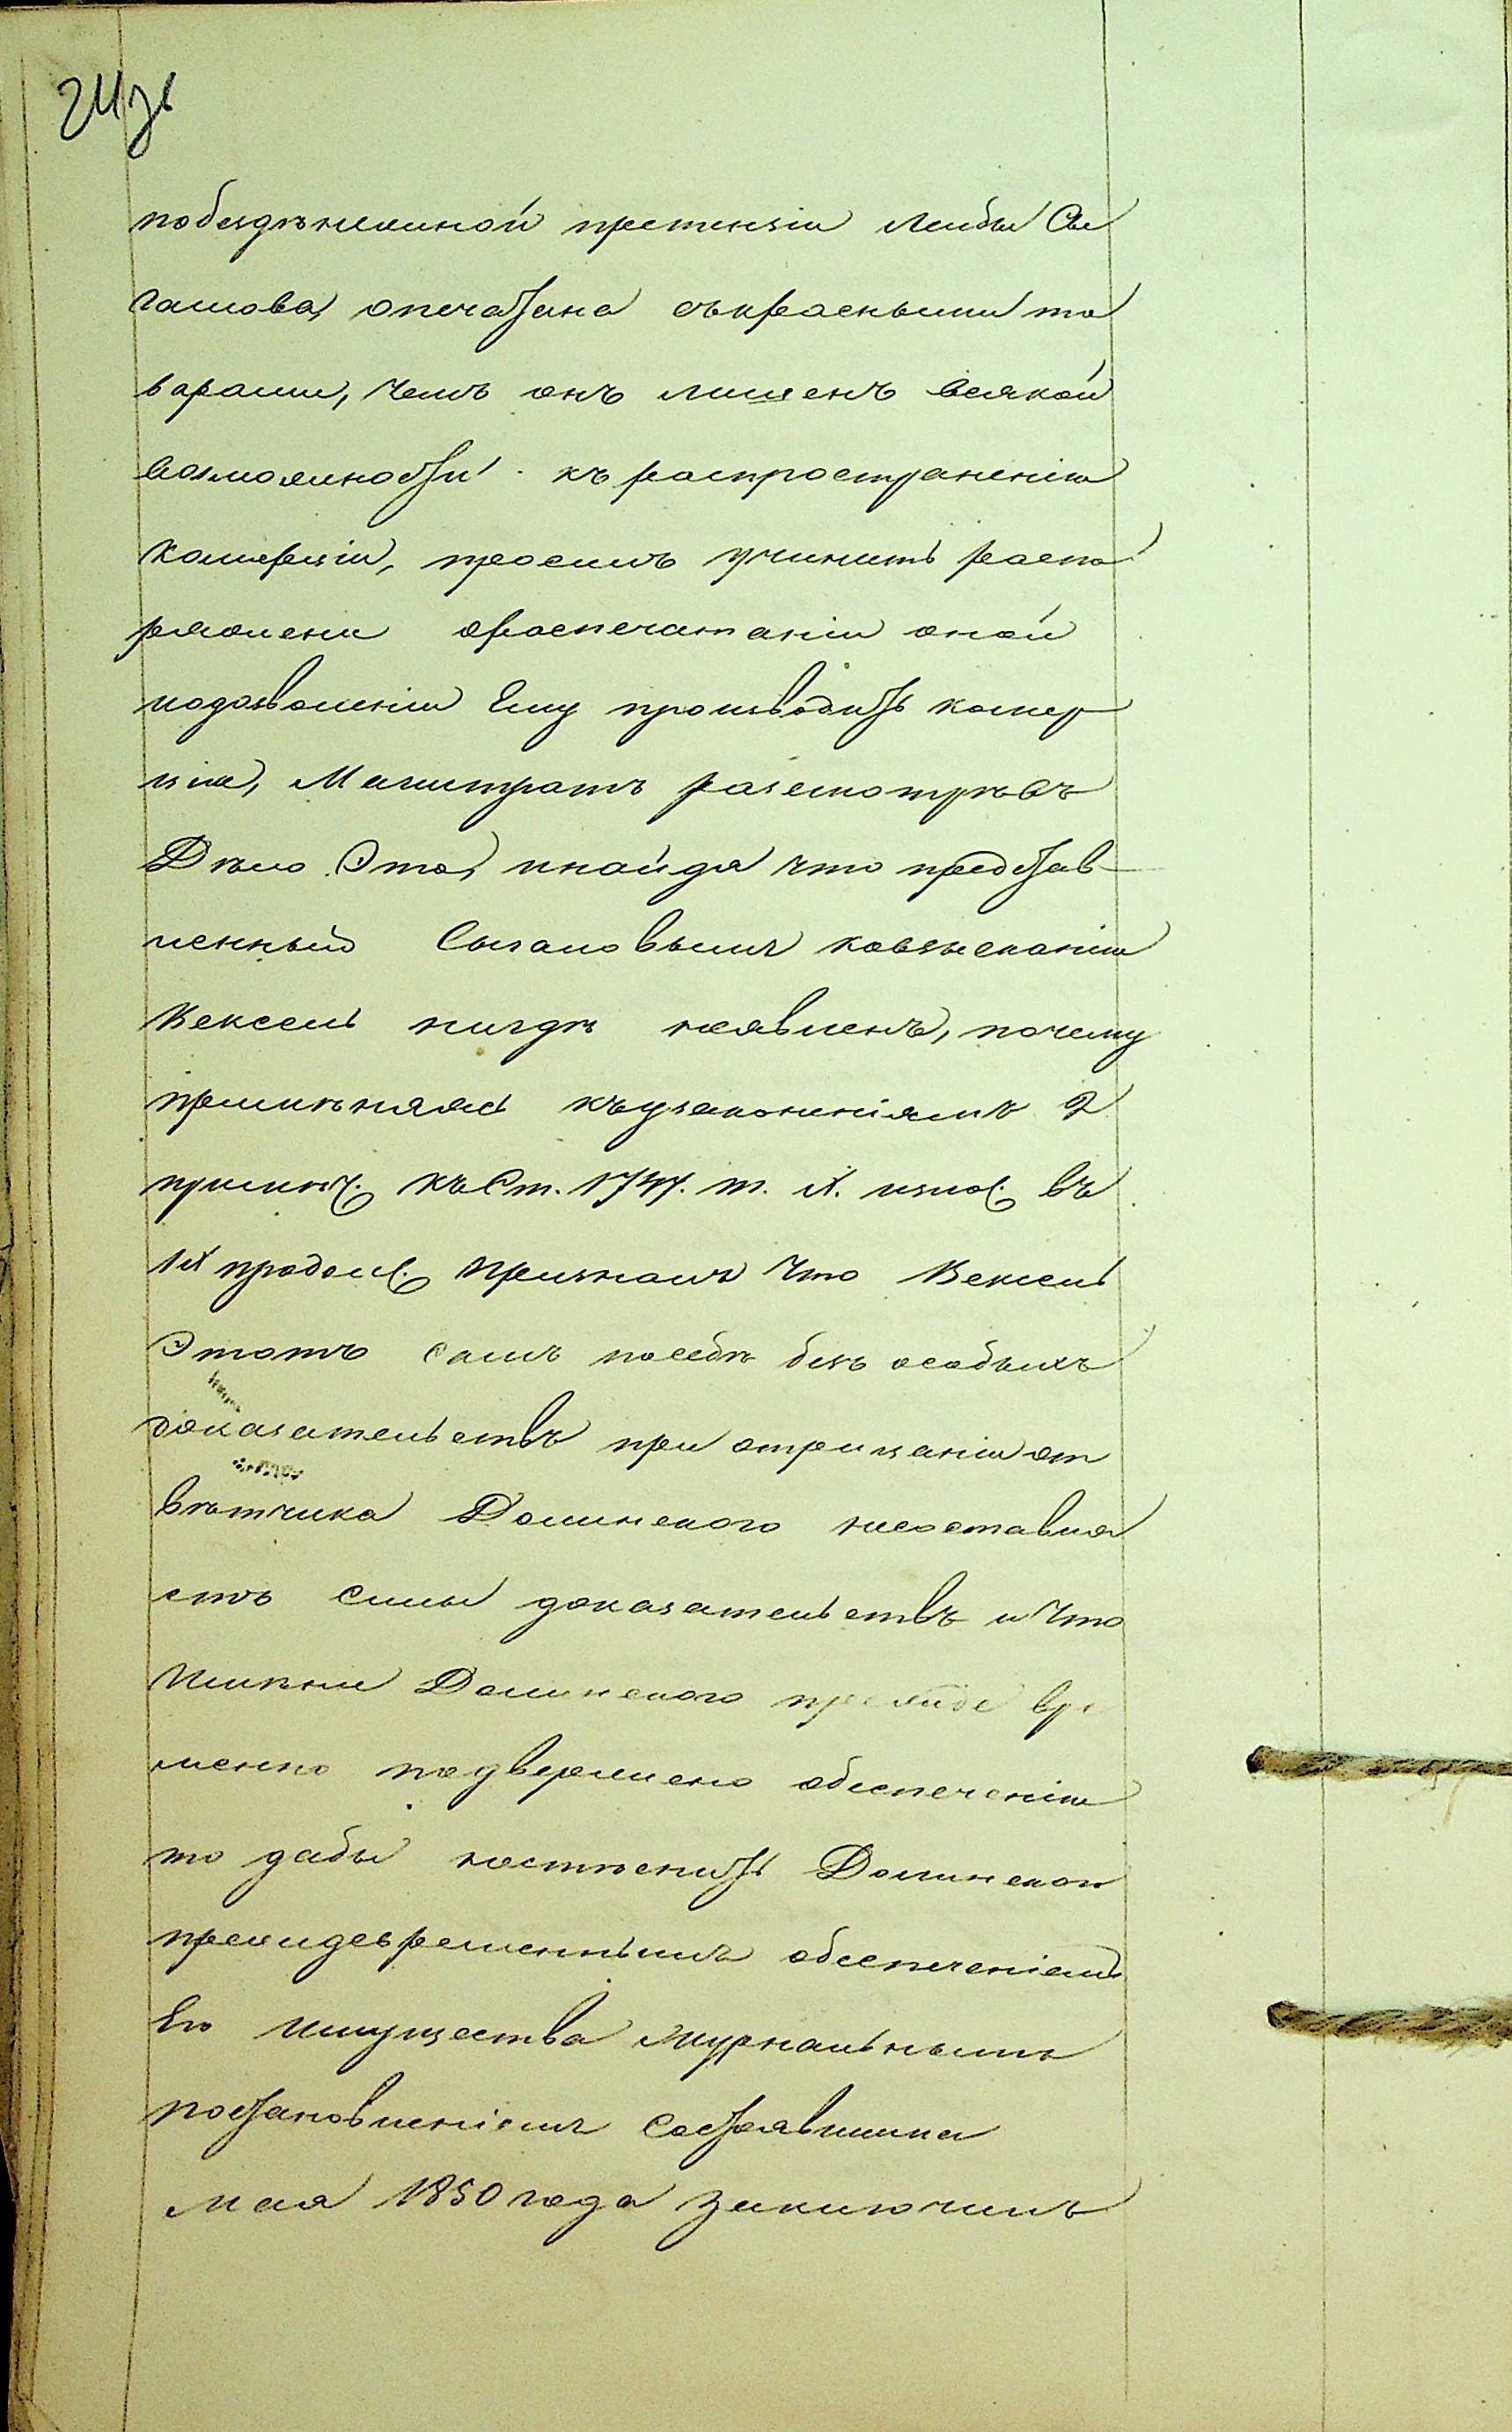 24 об
побездѣнежной претензіи Лейбы Сы
гамова, опечатана съкрасными то
варами, чемъ онъ лишенъ всякой
возможности къ распространенію
Комерціи, просилъ учинить распо
ряжени ораспечатаніи оной
иодозволеніи Ему производить комер
цію, Магистратъ разсмотрѣвъ
Дѣло Это, инайдя что представ
ленный Сыгамовымъ ковзысканію
Вексель нигдѣ неявленъ, почему
примѣняясь къузаконеніямъ 2
примѣч. къ Ст. 1747. т. IX. излож. въ
IX продолж. призналъ что Вексель
Этотъ самъ посебѣ безъ особыхъ
доказательствъ при отрицаніи от
вѣтчика Долинскаго несоставля
етъ силы доказательствъ и что
Имѣніе Долинскаго прежде вре
менно подвержено обеспеченію
то дабы нестѣснить Долинскаго
преждевременнымъ обеспеченіемъ
Его имущества журнальнымъ
постановленіемъ Состоявшимся
мая 1850 года заключилъ